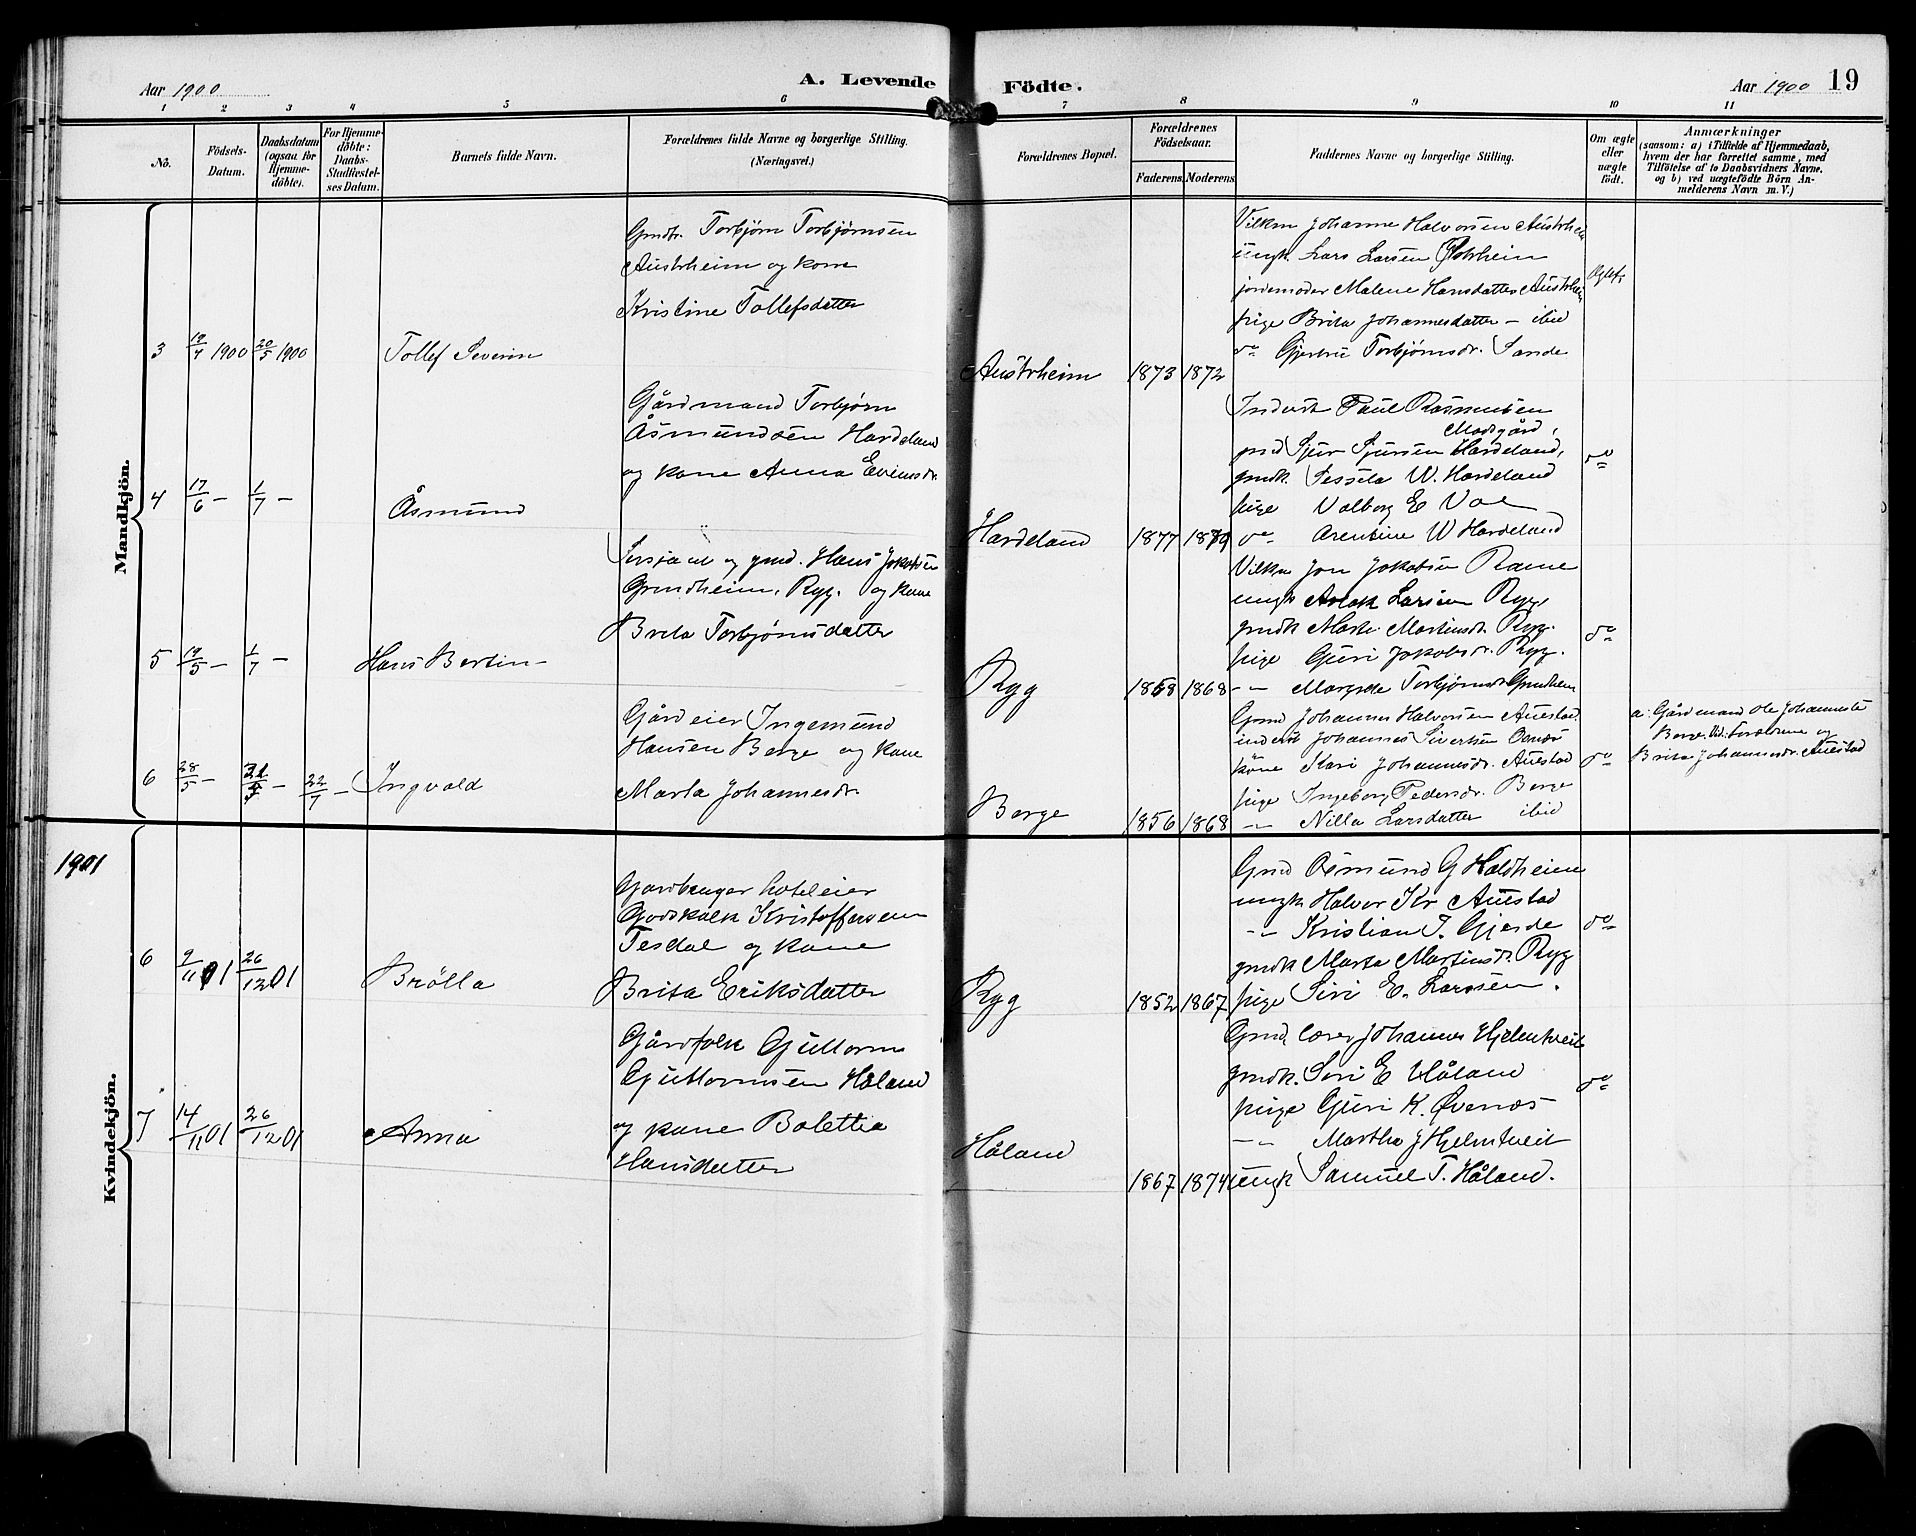 Aar 1900
A. Levende
Födte.
Aar 1900 19
1 2 3 4 5 6 7 8 9 10 11
No.
Födsels-
Datum.
Daabsdatum
(ogsaa for
Hjemme-
döbte).
For Hjemme-
döbte:
Daabs-
Stadfæstel-
ses Datum.
Barnets fulde Navn.
Forældrenes fulde Navne og borgerlige Stilling.
(Næringsvei.)
Forældrenes Bopæl.
Forældrenes
Födselsaar.
Faderens. Moderens.
Faddernes Navne og borgerlige Stilling.
Om ægte
eller
uægte
födt.
Anmærkninger
(saasom: a) i Tilfælde af Hjemmedaab,
hvem der har forrettet samme, med
Tilföielse af to Daabsvidners Navne,
og b) ved uægtefödte Börn An-
melderens Navn m. V.)
Mandkjön.
3 19/4 1900 20/5 1900
Tollef Severin
Gmdbr. Torbjørn Torbjørnsen
Austrheim og kone
Kristine Tollefsdatter
Austrheim 1873 1872
Vilkm Johanne Halvorsen Austrheim
ungk. Lars Larsen Østrheim
jordemoder Malene Hansdatter Austrheim
pige Brita Johannesdatter – ibid
do Gjertrü Torbjørnsdr. Sande
Ægtef.
4 17/6 – 1/7 –
Åsmund
Gårdmand Torbjørn
Åsmundsen Hardeland
og kone Anna Eveinsdr.
Hardeland 1877 1879
Inderst Paul Rasmussen
Madsgård,
gmd Sjur Sjursen Hardeland,
gmdk Sessela W. Hardeland
pige Valborg E Voe
do Arentine W Hardeland
do
5 19/5 – 1/7 –
Hans Bertin –
Sersjant og gmd. Hans Jakobsen
Grindheim, Ryg. og kone
Brita Torbjørnsdatter
Rygg 1858 1868
Vilkm Jon Jakobsen Rame
ungk Aslak Larsen Rygg
gmdk Marte Martinsdr. Ryg.
pige Guri Jakobsdr. Ryg.
– " – Margrete Torbjørnsdr Grindheim
do
6 28/5 – 22/7 –
Ingvald
Gårdeier Ingemund
Hansen Berge og kone
Marta Johannesdr.
Berge 1856 1868
Gmd Johannes Halvorsen Austad
inderst Johannes Sivertsen
kone Kari Johannesdr. Austad
pige Ingeborg Pedersdr. Berge
– " – Nilla Larsdatter ibid
do
a. Gårdmand Ole Johannesen
Berge. Vid: Forældrene og
Brita Johannesdr. Austad
1901
Kvindekjön.
6 9/11 01 26/12 01
Brølla
Gardbruger hoteleier
Godskalk Kristoffersen
Tesdal og kone
Brita Eriksdatter
Ryg 1852 1867
Gmd Osmund G Haldheim
ungk Halvor Kr Austad
– " – Kristian T. Gjerde
gmdk Marta Martinsdr. Ryg
pige Siri E. Larssen.
do
7 14/11 01 26/12 01
Anna
Gårdfolk Guttorm
Guttormsen Håland
og kone Boletta
Hansdatter
Håland
1867 1874
Gmd, lærer Johannes Hjelmtveit
gmdk. Siri E Håland
pige Guri K. Øvenæs
– " – Martha J Hjelmtveit
ungk Samuel T. Håland.
do